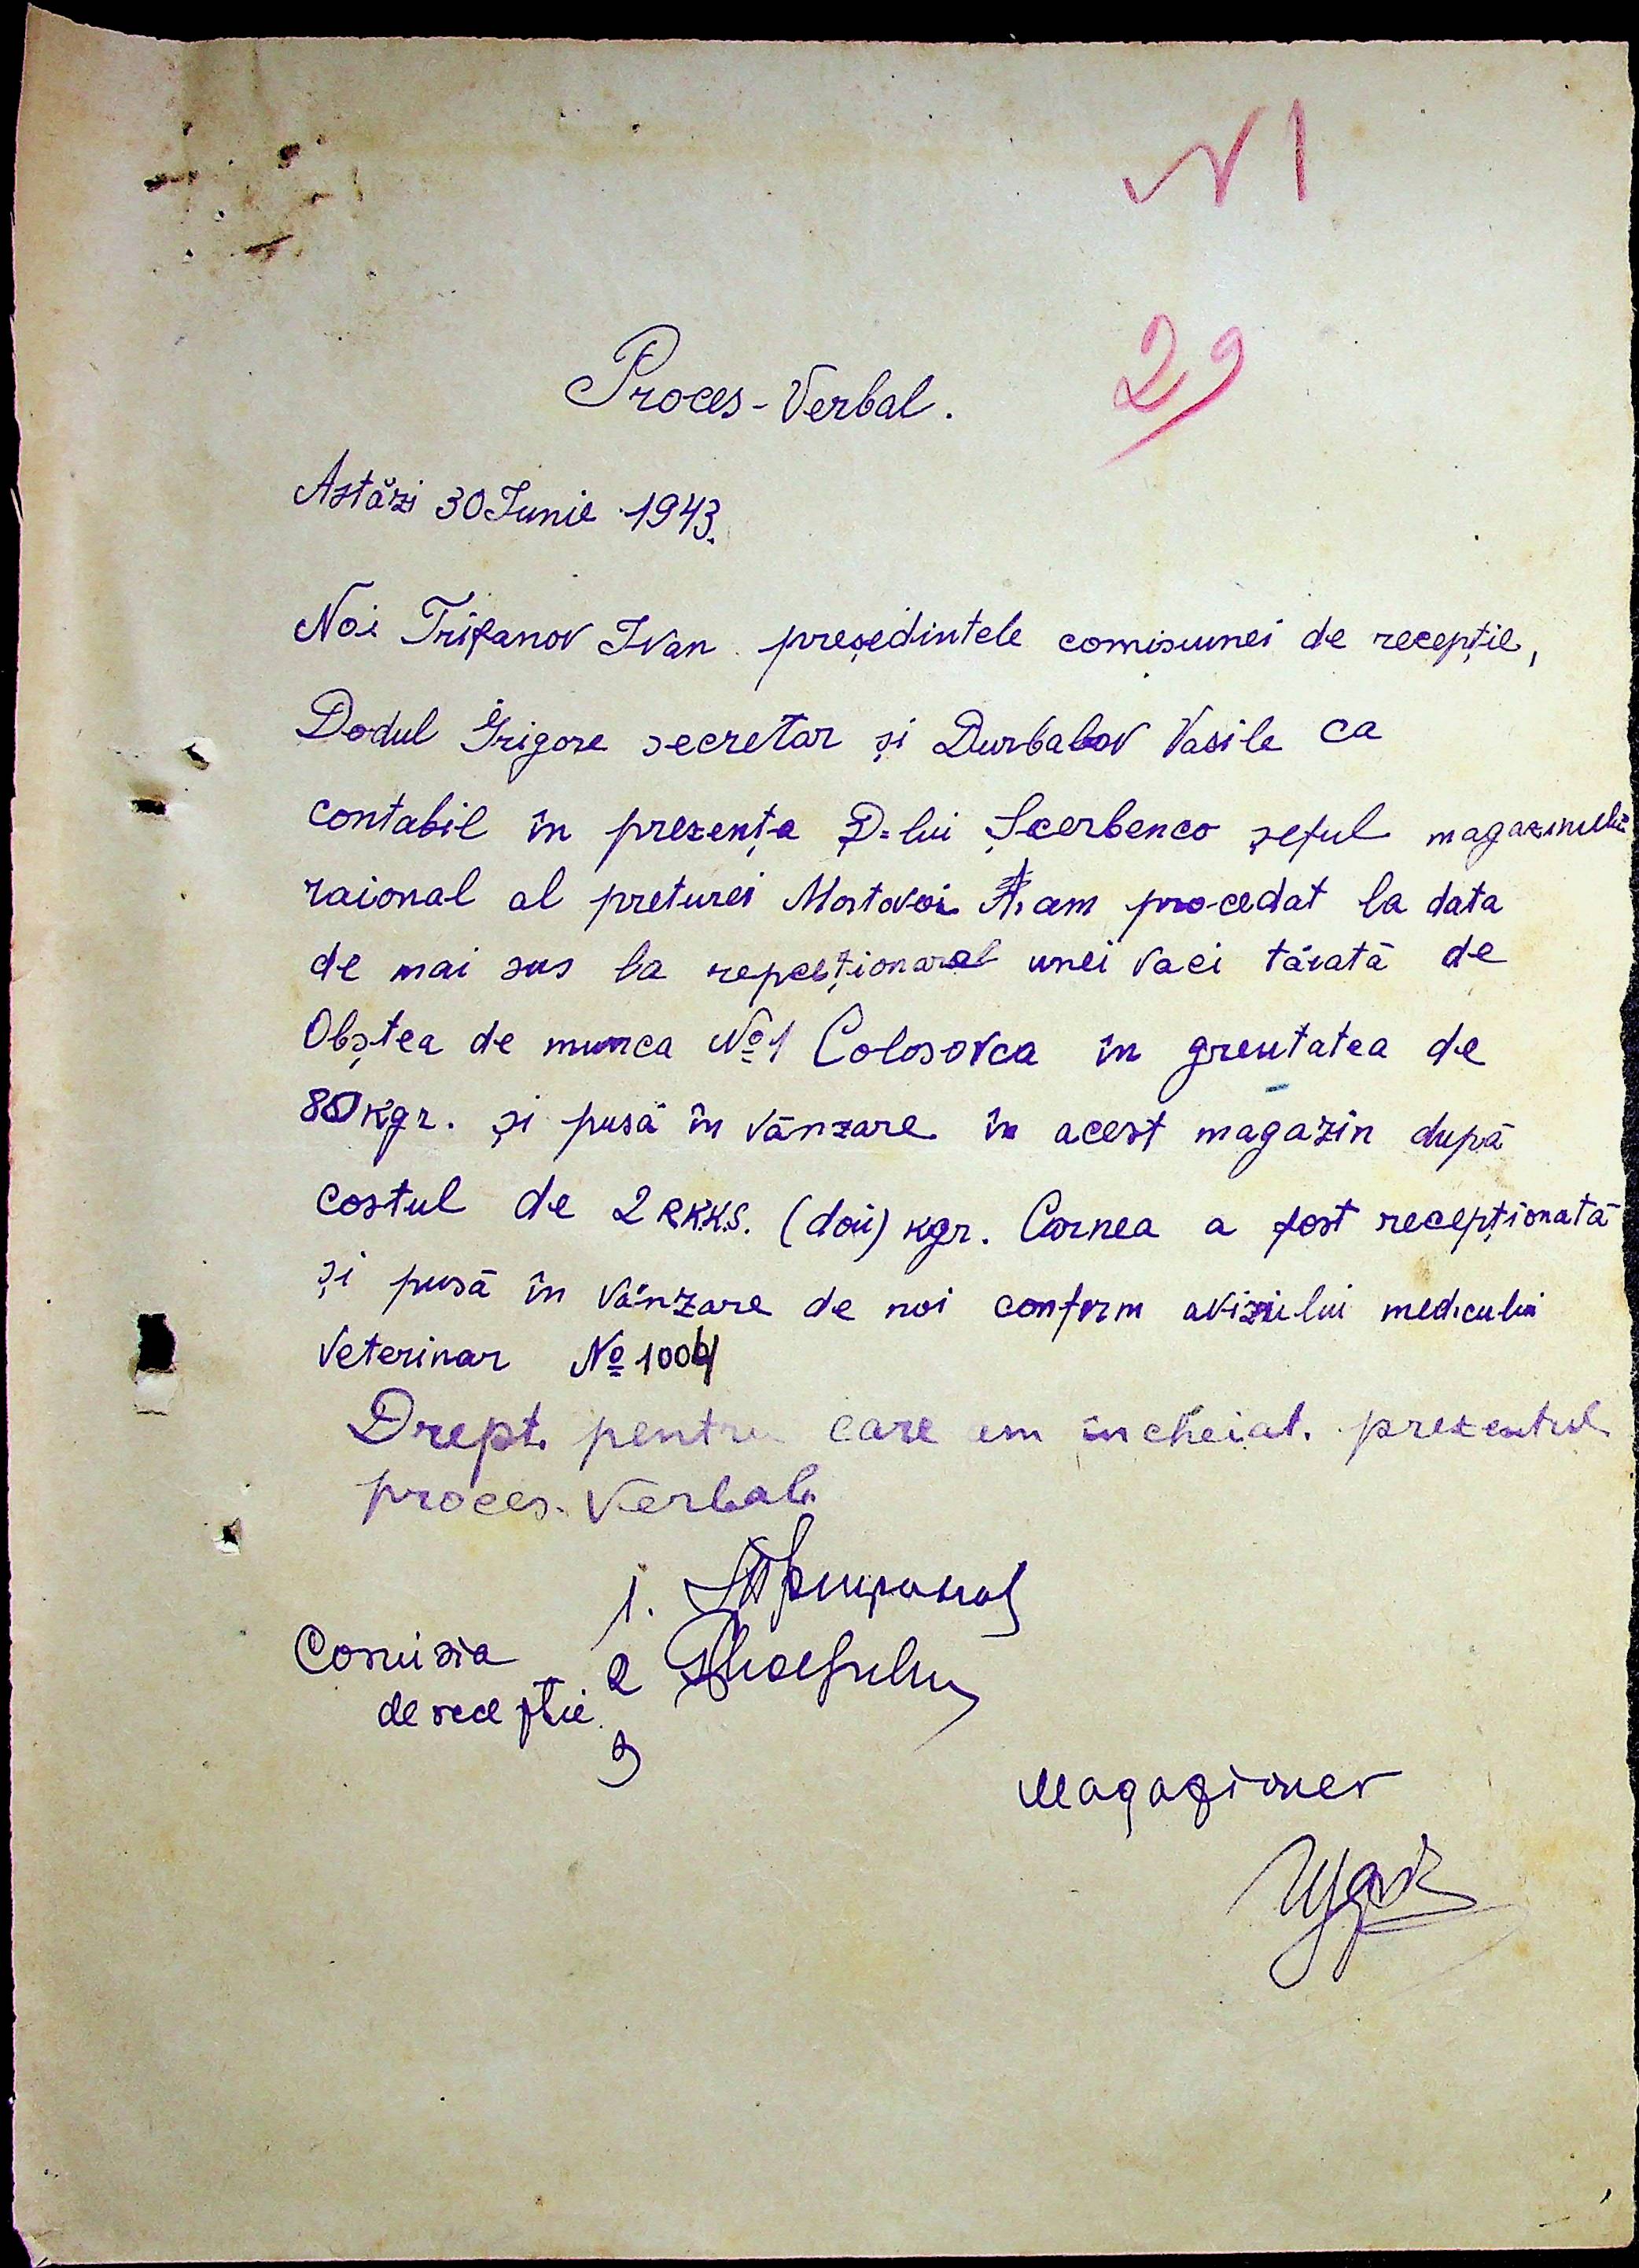 N 1
29
Proces-Verbal.
Astăzi 30 Iunie 1943.
Noi Trifanov Ivan președintele comisiunei de recepție,
Dodul Grigore secretar și Durbalov Vasile ca
contabil în prezența D-lui Șcerbenco șeful magazinului
raional al preturei Mostovoi am procedat la data
de mai sus la repceționarel unei vaci tăiată de
Obștea de munca № 1 Colosovca în greutatea de
80 kgr. și pusă în vânzare în acest magazin după
costul de 2 RKKS. (doii) kgr. Carnea a fost recepționată
și pusă în vânzare de noi confrm avizului medicului
Veterinar № 1004
Drept. pentru care am incheiat. prezentul
proces-Verbal.
1. Трифанов
Comisia 2
de receptie.
3
Magazioner